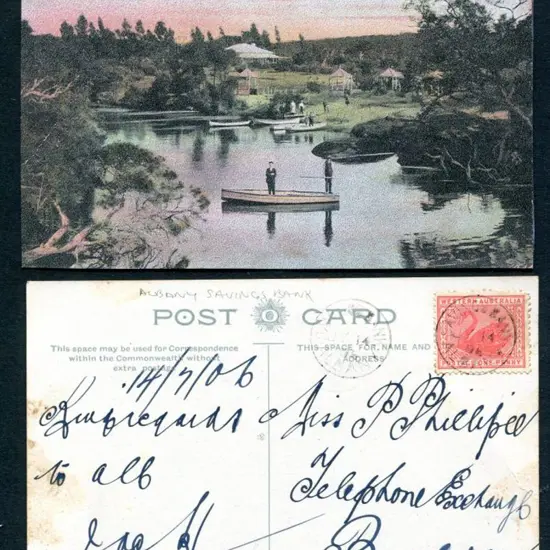 ALBANY SAVINGS BANK
POST CARD
This space may be used for Correspondence
within the Commonwealth without
extra postage
THIS SPACE FOR NAME AND
14/7/06
Kind regards
to all
Miss P Phillips
Telephone Exchange
WESTERN AUSTRALIA
ONE PENNY
14